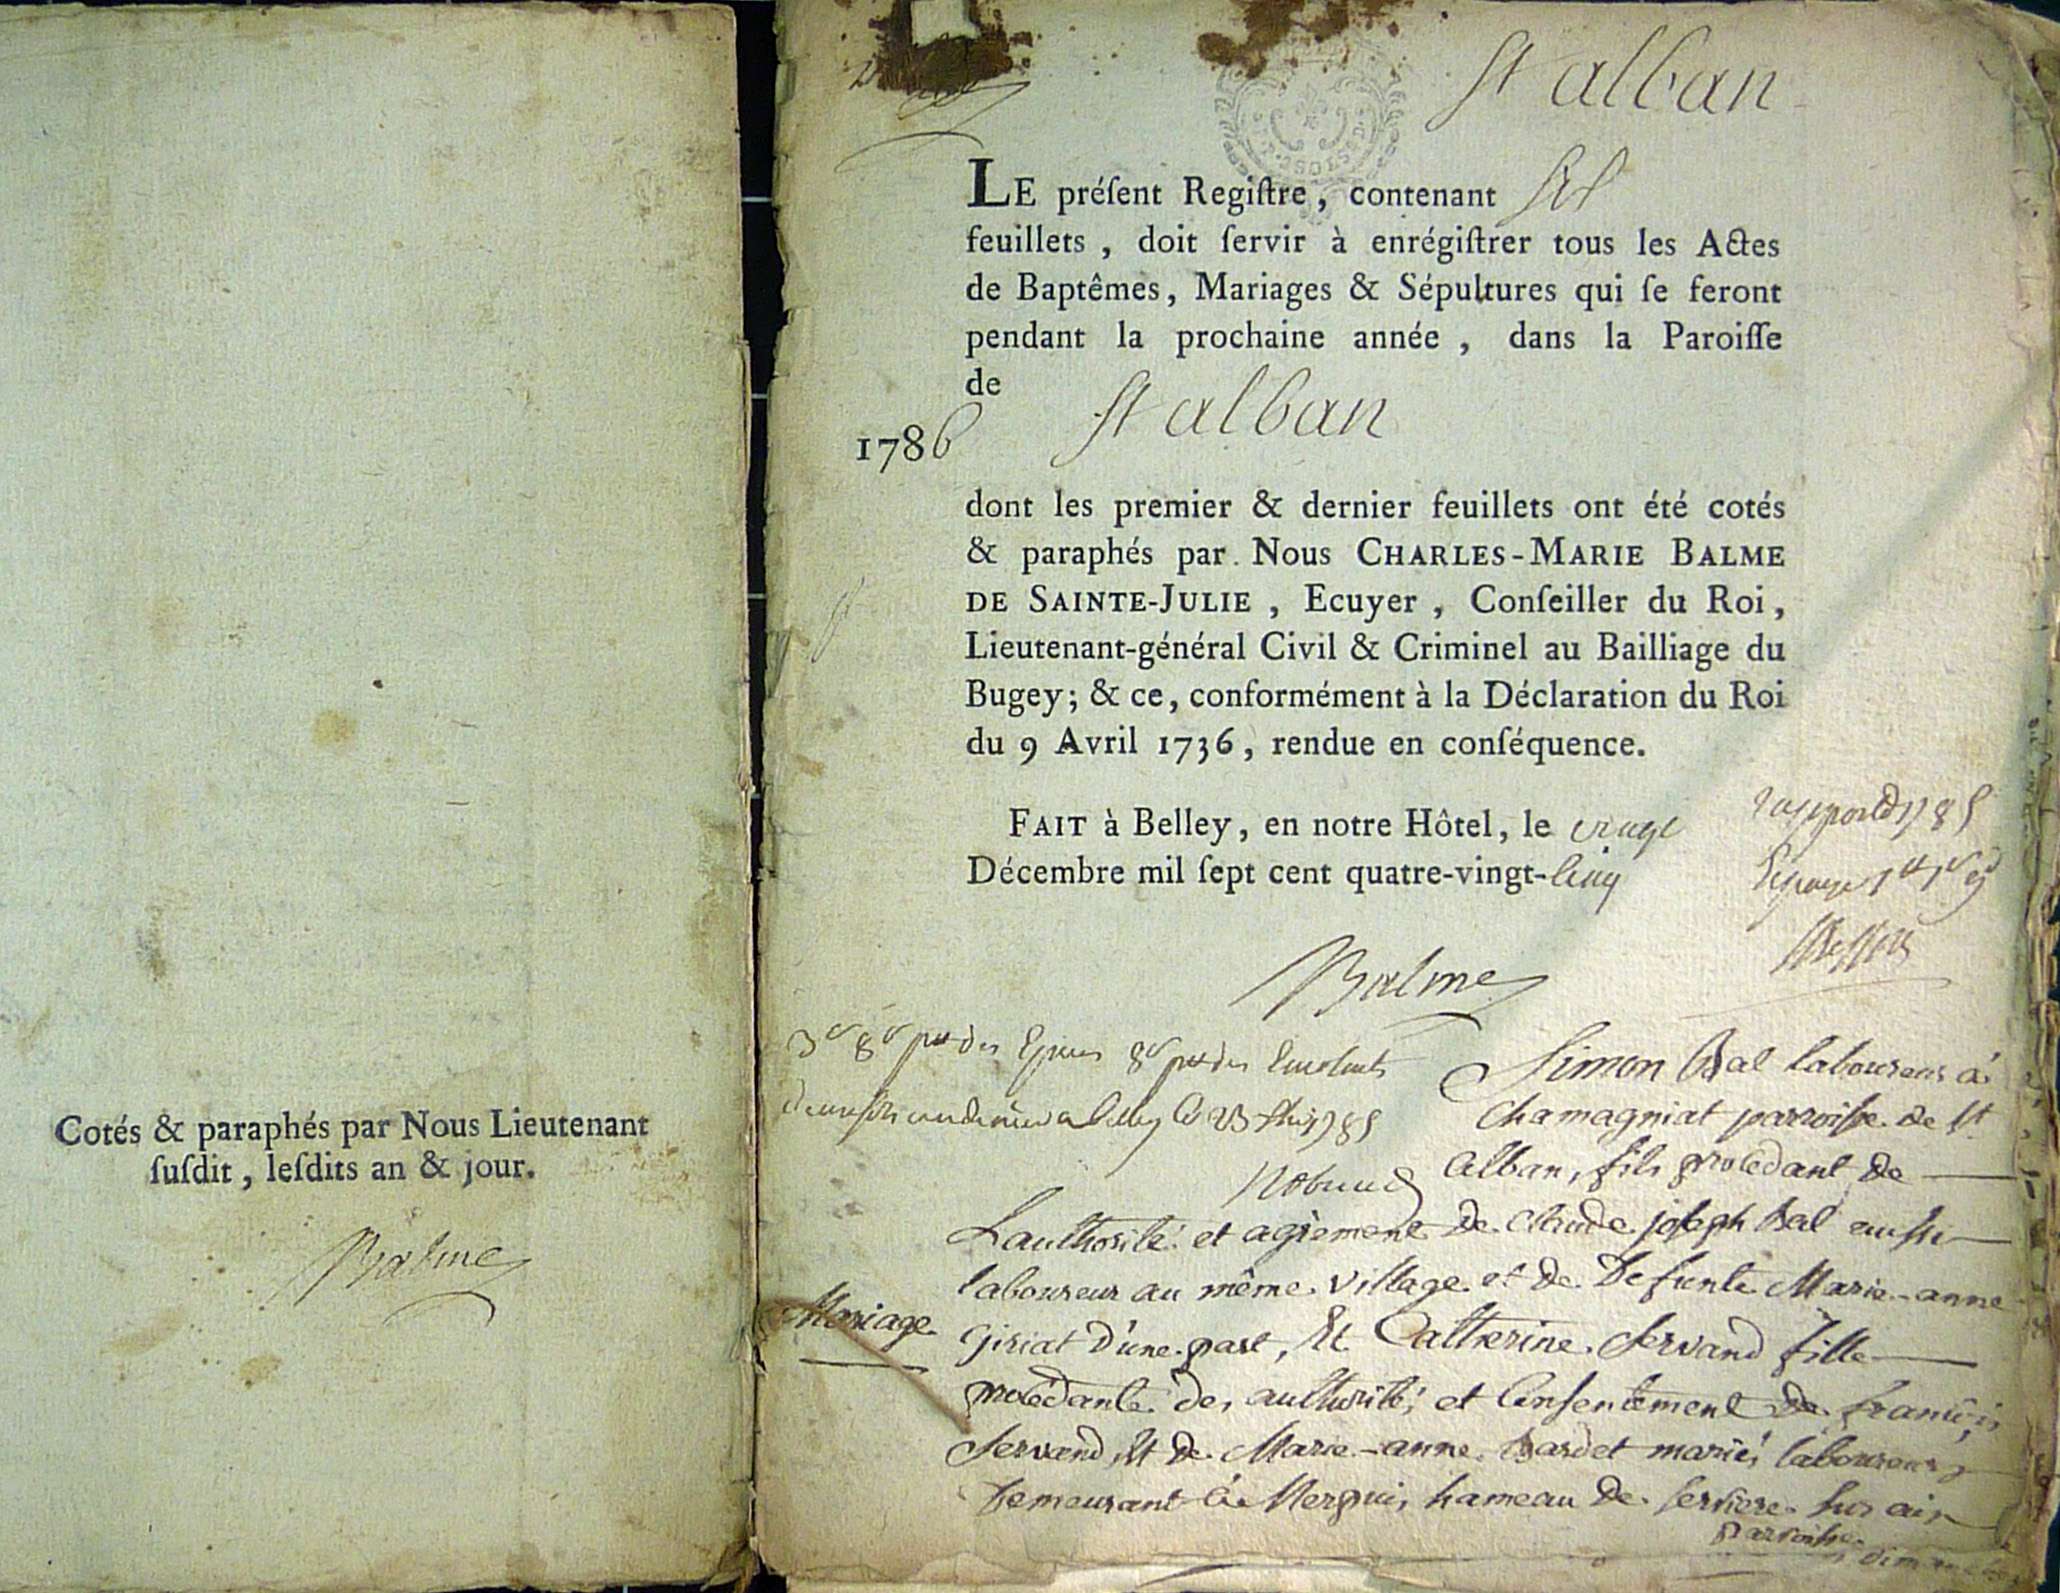 Cotés & paraphés par Nous Lieutenant
ſuſdit, leſdits an & jour.
Balme
St alban
LE préſent Regiſtre, contenant
feuillets, doit ſervir à enrégiſtrer tous les Actes
de Baptêmes, Mariages & Sépultures qui ſe feront
pendant la prochaine année, dans la Paroiſſe
de
St alban
1786
dont les premier & dernier feuillets ont été cotés
& paraphés par Nous CHARLES-MARIE BALME
DE SAINTE-JULIE, Ecuyer, Conſeiller du Roi,
Lieutenant-général Civil & Criminel au Bailliage du
Bugey; & ce, conformément à la Déclaration du Roi
du 9 Avril 1736, rendue en conſéquence.
FAIT à Belley, en notre Hôtel, le vingt
Décembre mil ſept cent quatre-vingt-cinq
Balme
Simon Bal laboureur à
Chamagniat parroisse de St
Alban, fils procedant de
L'authorité et agrement de Claude joseph Bal aussi
laboureur au même village et de Defunte Marie-anne
Giriat D'une part, Et Catherine Servand fille
Mariage
procedante des authorité et Consentement de françois
Servand Et de Marie-anne Bardet mariés laboureurs
Demeurant à hameau de
parroisse